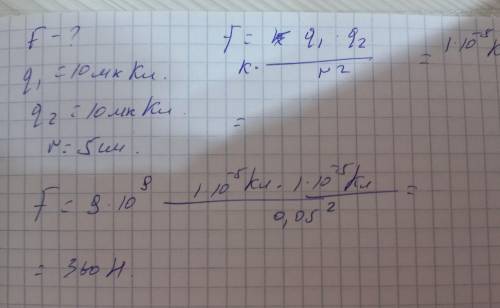 F - ?
q₁ = 10 мк Кл.
q₂ = 10 мк Кл.
r = 5 см.
F = q₁ · q₂
к· r² = 1·10⁻⁵ К
=
F = 9 · 10⁹ 1·10⁻⁵ Кл · 1·10⁻⁵ Кл =
0,05²
= 360 Н.